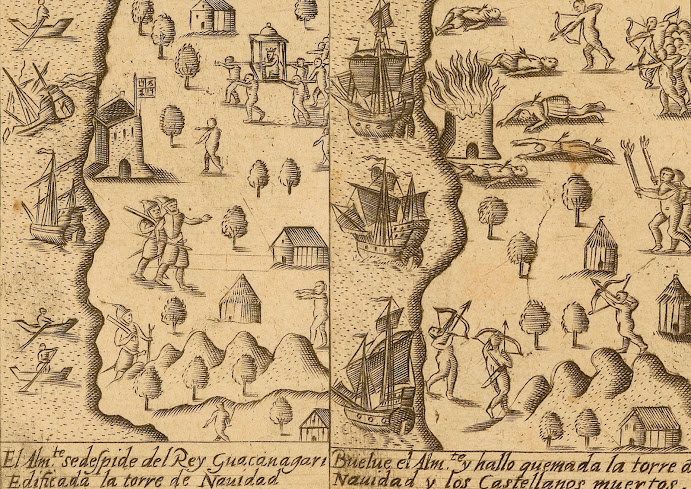 El Alm.te sedespide del Rey Guacanagari
Edificada la torre de Navidad
Buelue el Alm.te y hallo quemada la torre d
Navidad y los Castellanos muertos.